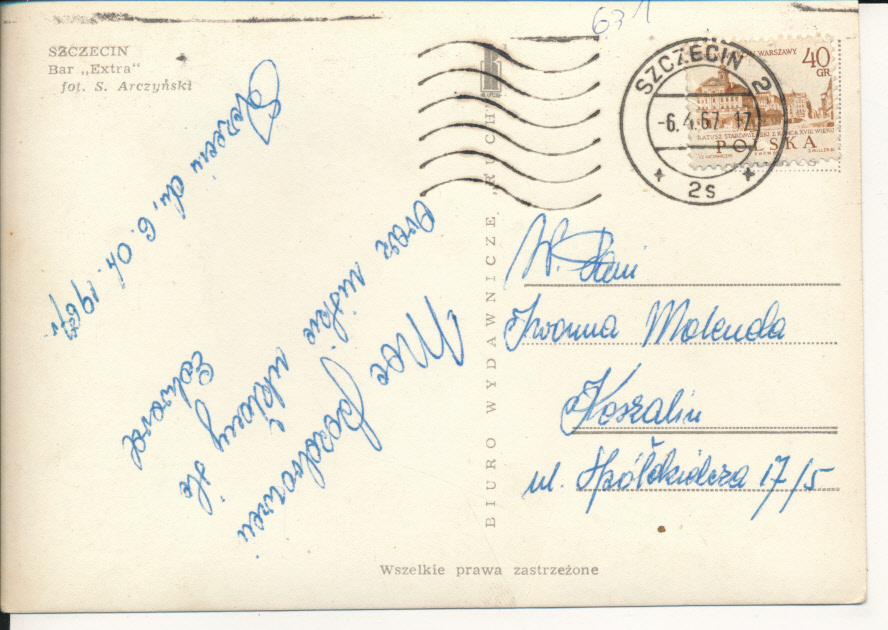 671
SZCZECIN
Bar „Extra“
fot. S. Arczyński
SZCZECIN 2
-6.4.67.-17
2s
WARSZAWY
40
GR
RATUSZ STAROMIEJSKI Z KOŃCA XVIII WIEKU
POLSKA
BIURO WYDAWNICZE „RUCH”
Szczecin dn, 6. 04. 1967r
Moc pozdrowień
oraz niskie ukłony śle
Edward
W. Pani
Iwonna Molenda
Koszalin
ul. Spółdzielcza 17/5
Wszelkie prawa zastrzeżone